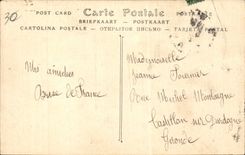 30
POST CARD Carte Postale
BRIEFKAART - POSTKAART
CARTOLINA POSTALE - ОТКРЫТОЕ ПИСЬМО - TARJETA POSTAL
Mademoiselle
Jeanne
Mes amitiés
Rue Michel Montaigne
Castillon sur Dordogne
Gironde